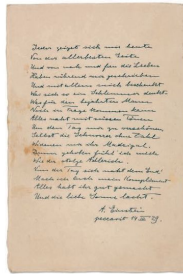 Jeder zeiget sich mir heute
Von der allerbesten Seite
Und von nah und fern die Lieben
Haben rührend mir geschrieben
Und mit allem mich beschenkt
Was sich so ein Schlemmer denkt
Was für den bejahrten Mann
Noch in Frage kommen kann
Alles naht mit süssen Tönen
Um den Tag mir zu verschönen
Selbst die Schnorrer ohne Zahl
Widmen mir ihr Madrigal.
Drum gehoben fühl ich mich
Wie der stolze Adlerich.
Nun der Tag sich naht dem End
Mach ich euch mein Kompliment
Alles habt ihr gut gemacht
Und die liebe Sonne lacht.
A. Einstein
peccavit 14. III 29.